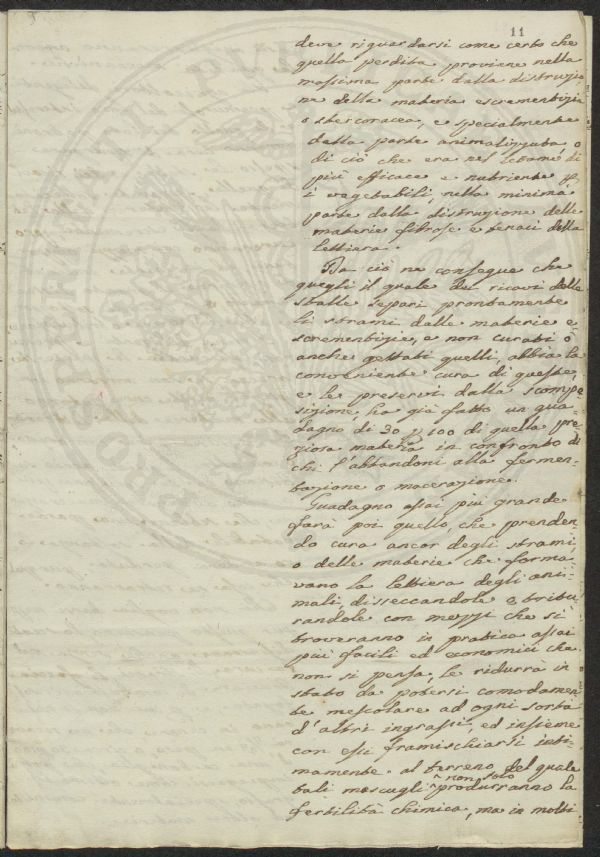 11
deve riguardarsi come certo che
quella perdita proviene nella
massima parte dalla distruzio
ne della materia escrementizia
o stercoracea, e specialmente
dalla parte animalizzata, o
di ciò che era nel letame di
più efficace e nutriente p
i vegetabili, nella minima
parte dalla distruzione delle
materie fibrose e tenaci della
lettiera.
Da ciò ne consegue che
quegli il quale dei ricavi delle
stalle separi prontamente
li strami dalle materie e
scrementizie, e non curati o
anche gettati quelli, abbia la
conveniente cura di queste,
e le preservi dalla scompo-
sizione, ha già fatto un gua-
dagno di 30 p 100 di quella pre-
ziosa materia in confronto di
chi l'abbandoni alla fermen-
tazione o macerazione.
Guadagno assai più grande
farà poi quello, che prenden
do cura ancor degli strami
o delle materie che forma-
vano la lettiera degli ani-
mali, disseccandole e tritu-
randole con mezzi che si
troveranno in pratica assai
più facili ed economici che
non si pensa, le ridurrà in
stato da potersi comodamen-
te mescolare ad ogni sorta
d'altri ingrassi, ed insieme
con essi framischiarsi inti-
mamente al terreno del quale
tali mescugli non solo produrranno la
fertilità chimica, ma in molti